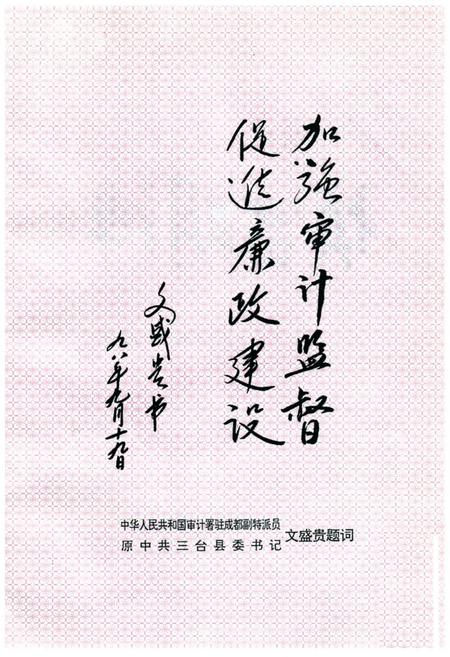 加强审计监督
促进廉政建设
文盛贵书
九八年九月十九日
中华人民共和国审计署驻成都副特派员
原中共三台县委书记
文盛贵题词